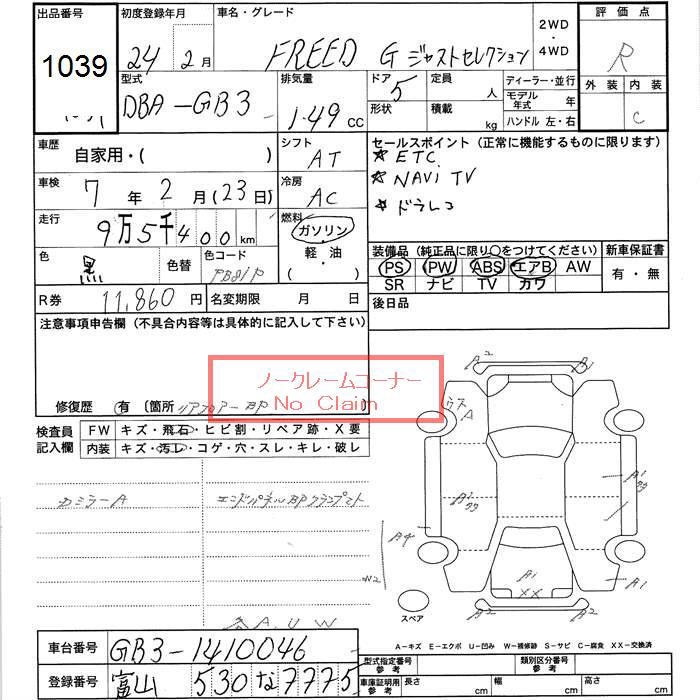 出品番号 初度登録年月 車名・グレード 2WD・4WD 評価点
1039 24年 2月 FREED G ジャストセレクション R
型式 排気量 ドア 定員 ディーラー・並行 外装 内装
DBA-GB3 1.49 cc 5 人 モデル年式 年 C
形状 積載 kg ハンドル 左・右
車歴 自家用・( ) シフト AT
セールスポイント(正常に機能するものに限ります)
★ETC
★NAVI TV
★ドラレコ
車検 7年 2月(23日) 冷房 AC
走行 9万5千400km 燃料 ガソリン・軽油
( )
色 黒 色替 色コード PB81P
装備品(純正品に限り○をつけてください) 新車保証書
PS PW ABS エアB AW 有・無
SR ナビ TV カワ
R券 11,860円 名変期限 月 日 後日品
注意事項申告欄(不具合内容等は具体的に記入して下さい)
ノークレームコーナー
No Claim
修復歴 有 〔箇所 リアフロアーBP 〕
検査員記入欄 FW キズ・飛石・ヒビ割・リペア跡・X要
内装 キズ・汚レ・コゲ・穴・スレ・キレ・破レ
Dミラー A エンドパネルBPクランプマト
A2 A2
A
A1 A1
A4
W2 A1
XX A1
スペア
A2 A2
A,U,W
A-キズ E-エクボ U-凹み W-補修跡 S-サビ C-腐食 XX-交換済
車台番号 GB3-1410046 型式指定番号 参考 類別区分番号 参考
登録番号 富山 530 な 7775 車庫証明用 参考 長さ cm 幅 cm 高さ cm